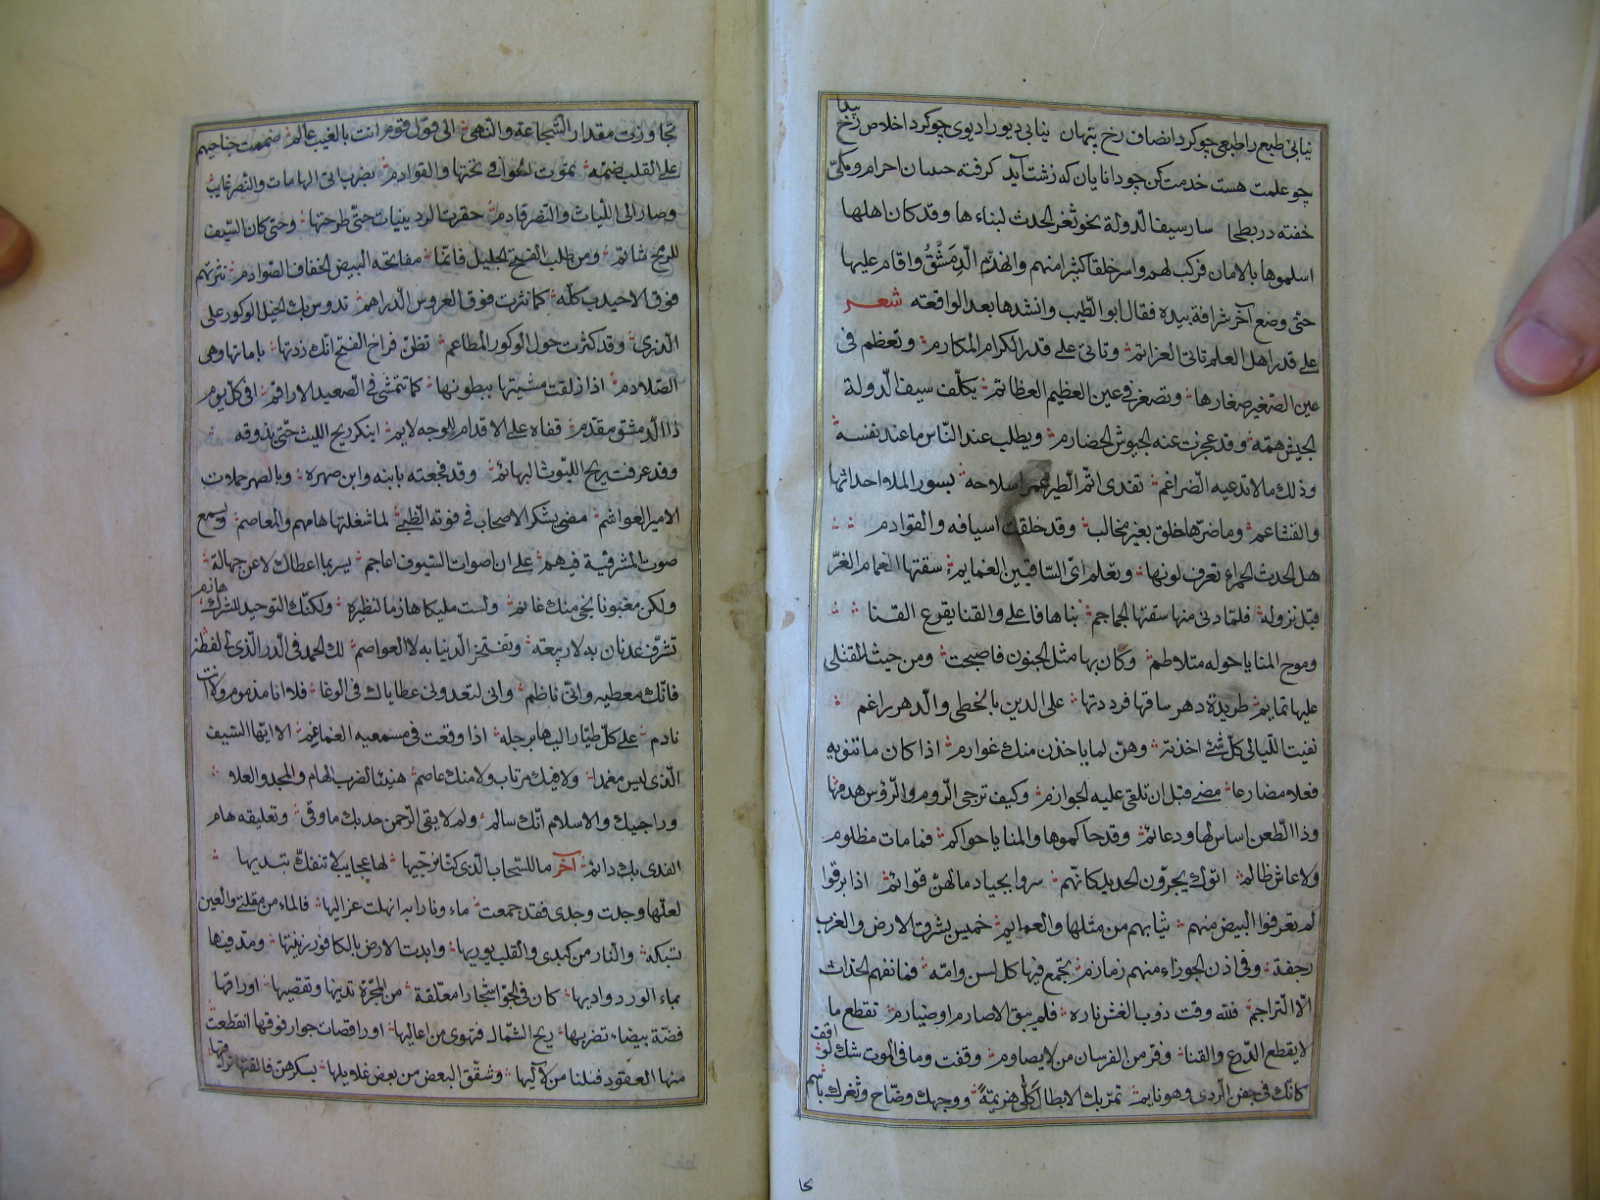 نیابی طبع را طبعی چو کرد انصاف رخ پنهان نیابی دیو را دیوی چو کرد اخلاص رخ پیدا
چو علمت هست خدمت کن چو دانایان که زشت آید گرفته چینیان احرام و مکی
خفته در بطحا سار سيف الدولة نحو ثغر الحدث لبناءها وقد كان اهلها
اسلموها بالامان فركب لهم واسر خلقا كثيرا منهم وانهدم الدمشق واقام عليها
حتى وضع آخر شرافة بيده فقال ابو الطيب وانشدها بعد الواقعته شعر
على قدر اهل العلم تاتى العزائم وتاتى على قدر الكرام المكارم وتعظم فى
عين الصغير صغارها وتصغر فى عين العظيم العظائم يكلف سيف الدولة
الجيش همته وقد عجزت عنه الجيوش الخضارم ويطلب عند الناس ما عند نفسه
وذلك ما لا تدعيه الضراغم تفدى اتم الطير عمرا سلاحه نسور الملا احداثها
والقشاعم وما ضرها خلق بغير مخالب وقد خلقت اسيافه والقوادم
هل الحدث الحمراء تعرف لونها وتعلم اى الساقيين الغمايم سقتها الغمام الغر
قبل نزوله فلما دنى منها سقتها الجماجم بناها فاعلى والقنا يقرع القنا
وموج المنايا حوله متلاطم وكان بها مثل الجنون فاصبحت ومن حيث القتلى
عليها تمايم طريدة دهر ساقها فرددتها على الدين بالخطى والدهر راغم
تفيت الليالى كل شئ اخذته وهن لما ياخذن منك غوارم اذا كان ما تنويه
فعلا مضارعا مضى قبل ان تلقى عليه الجوازم وكيف ترجى الروم والروس هدمها
وذا الطعن اساس لها ودعائم وقد حاكموها والمنايا حواكم فما مات مظلوم
ولا عاش ظالم اتوك يجرون الحديد كانهم سروا بجياد ما لهن قوائم اذا برقوا
لم تعرفوا البيض منهم ثيابهم من مثلها والعمايم خميس بشرق الارض والغرب
رجفة وفى اذن الجوزاء منهم زمازم تجمع فيها كل لسن وامة فما تفهم الحداث
الا التراجم فلله وقت ذوب الغش ناره فلم يبق الا صارم او ضبارم تقطع ما
لا يقطع الدرع والقنا وفر من الفرسان من لا يصادم وقفت وما فى الموت شك لواقف
كانك فى جفن الردى وهو نايم تمر بك الابطال كلمى هزيمة ووجهك وضاح وثغرك باسم
تجاوزت مقدار الشجاعة والنهى الى قول قوم انت بالغيب عالم ضممت جناحيهم
على القلب ضمة تموت الخوافى تحتها والقوادم بضرب اتى الهامات والنصر غايب
وصار الى اللبات والنصر قادم حقرت الردينيات حتى طرحتها وحتى كان السيف
للرمح شاتم ومن طلب الفتح الجليل فانما مفاتحه البيض الخفاف الصوارم نثرتهم
فوق الاحيدب كله كما نثرت فوق العروس الدراهم تدوس بك الخيل الوكور على
الذرى وقد كثرت حول الوكور المطاعم تظن فراخ الفتح انك زدتها باماتها وهى
الصلادم اذا زلقت مشيتها ببطونها كما تتمشى فى الصعيد الاراقم افى كل يوم
ذا الدمشق مقدم قفاه على الاقدام للوجه لايم اينكر ريح الليث حتى يذوقه
وقد عرفت ريح الليوث البهائم وقد فجعته بابنه وابن صهره وبالصهر حملات
الامير الغواشم مضى يشكر الاصحاب فى فوته الظبى لما شغلتها هامهم والمعاصم ويسمع
صوت المشرفية فيهم على ان اصوات السيوف اعاجم يسر بما اعطاك لا عن جهالة
ولكن مغبونا نجى منك غانم ولست مليكا هازما لنظيره ولكنك التوحيد للشرك هازم
تشرف عدنان به لا ربيعة وتفتخر الدنيا به لا العواصم لك الحمد فى الدر الذى لى لفظه
فانك معطيه وانى ناظم وانى لتعدونى عطاياك فى الوغا فلا انا مذموم ولا انت
نادم على كل طيار اليها برجله اذا وقعت فى مسمعيه الغماغم الا ايها السيف
الذى ليس مغمدا ولا فيك مرتاب ولا منك عاصم هنيئا لضرب الهام والمجد والعلا
وراجيك والاسلام انك سالم ولم لا يقى الرحمن حديك ما وقى وتعليقه هام
العدى بك دائم آخر ما للسحاب الذى كنا نرجيها لها عجايب لا تنفك تبديها
لعلها وجدت وجدى فقد جمعت ماء ونارا به انهلت عزاليها فالماء من مقلتى والعين
تسبكه والنار من كبدى والقلب يوريها وابدت الارض بالكافور زينتها ومد فيها
بماء الورد واديها كان فى الجو اشجارا معلقة من المجرة تدينها وتقصيها اوراقها
فضة بيضاء تضربها ريح الشمال فتهوى من اعاليها او راقصات جوار فوقها انقطعت
منها العقود فنلنا من لآليها وشقق البعض من بعض غلايلها بسكرهن فالقتها تراقيها